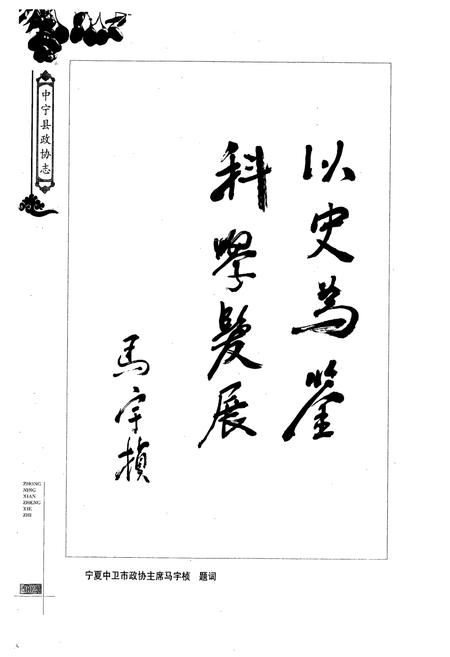 中宁县政协志
以史为鉴
科學發展
马宇桢
ZHONG
NING
XIAN
ZHENG
XIE
ZHI
宁夏中卫市政协主席马宇桢 题词